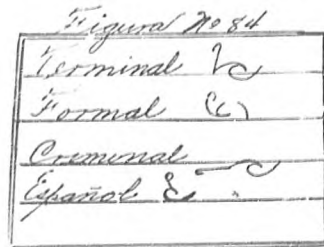 Figura No 84
Terminal
Formal
Cremenal
Español